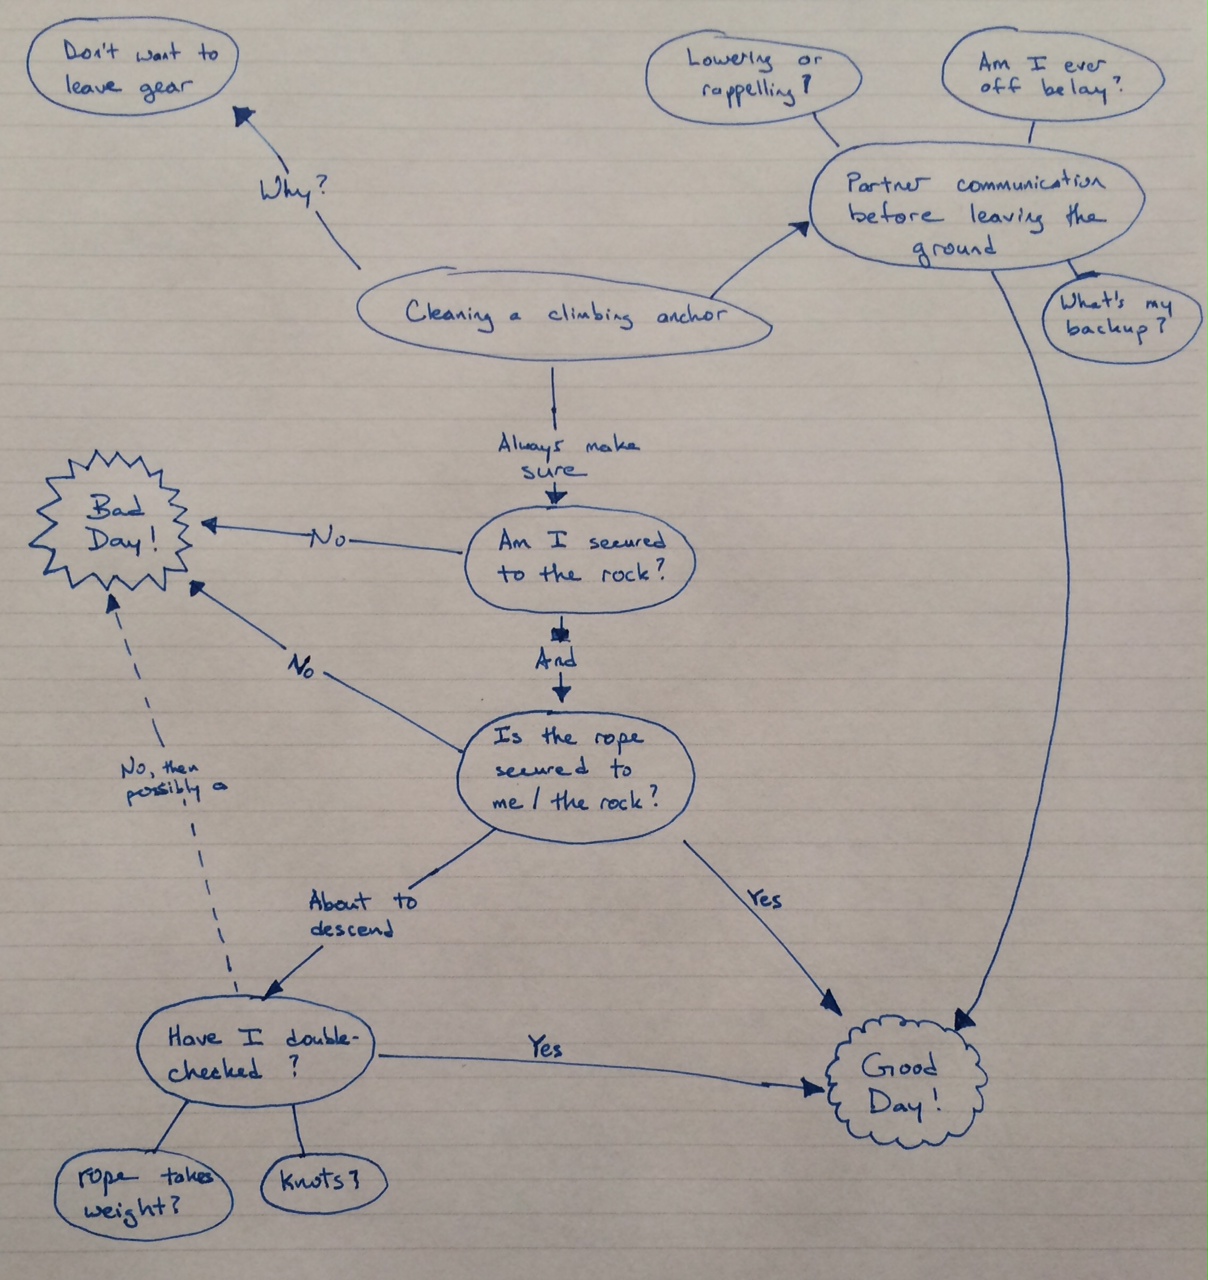 Don't want to
leave gear
Lowering or
rappelling?
Am I ever
off belay?
Why?
Partner communication
before leaving the
ground
Cleaning a climbing anchor
What's my
backup?
Always make
sure
Bad
Day!
No
Am I secured
to the rock?
No
And
Is the rope
secured to
me / the rock?
No, then
possibly a
About to
descend
Yes
Have I double-
checked?
Yes
Good
Day!
rope takes
weight?
Knots?